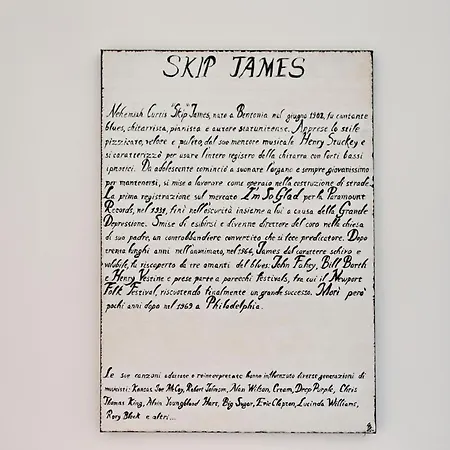 SKIP JAMES
Nehemiah Curtis "Skip" James, nato a Bentonia nel giugno 1902, fu cantante
blues, chitarrista, pianista e autore statunitense. Apprese lo stile
pizzicato, veloce e pulito, dal suo mentore musicale Henry Stuckey e
si caratterizzò per usare l'intero registro della chitarra con forti bassi
ipnotici. Da adolescente cominciò a suonare l'organo e sempre giovanissimo
per mantenersi, si mise a lavorare come operaio nella costruzione di strade.
La prima registrazione sul mercato I'm So Glad per la Paramount
Records, nel 1931, finì nell'oscurità insieme a lui a causa della Grande
Depressione. Smise di esibirsi e divenne direttore del coro nella chiesa
di suo padre, un contrabbandiere convertito che si fece predicatore. Dopo
trenta lunghi anni nell'anonimato, nel 1964, James dal carattere schivo e
volubile, fu riscoperto da tre amanti del blues: John Fahey, Bill Barth
e Henry Vestine e prese parte a parecchi festivals, tra cui il Newport
Folk Festival, riscuotendo finalmente un grande successo. Morì però
pochi anni dopo nel 1969 a Philadelphia.
Le sue canzoni adorate e reinterpretate hanno influenzato diverse generazioni di
musicisti: Kansas Joe McCoy, Robert Johnson, Alan Wilson, Cream, Deep Purple, Chris
Thomas King, Alvin Youngblood Hart, Big Sugar, Eric Clapton, Lucinda Williams,
Rory Block e altri...